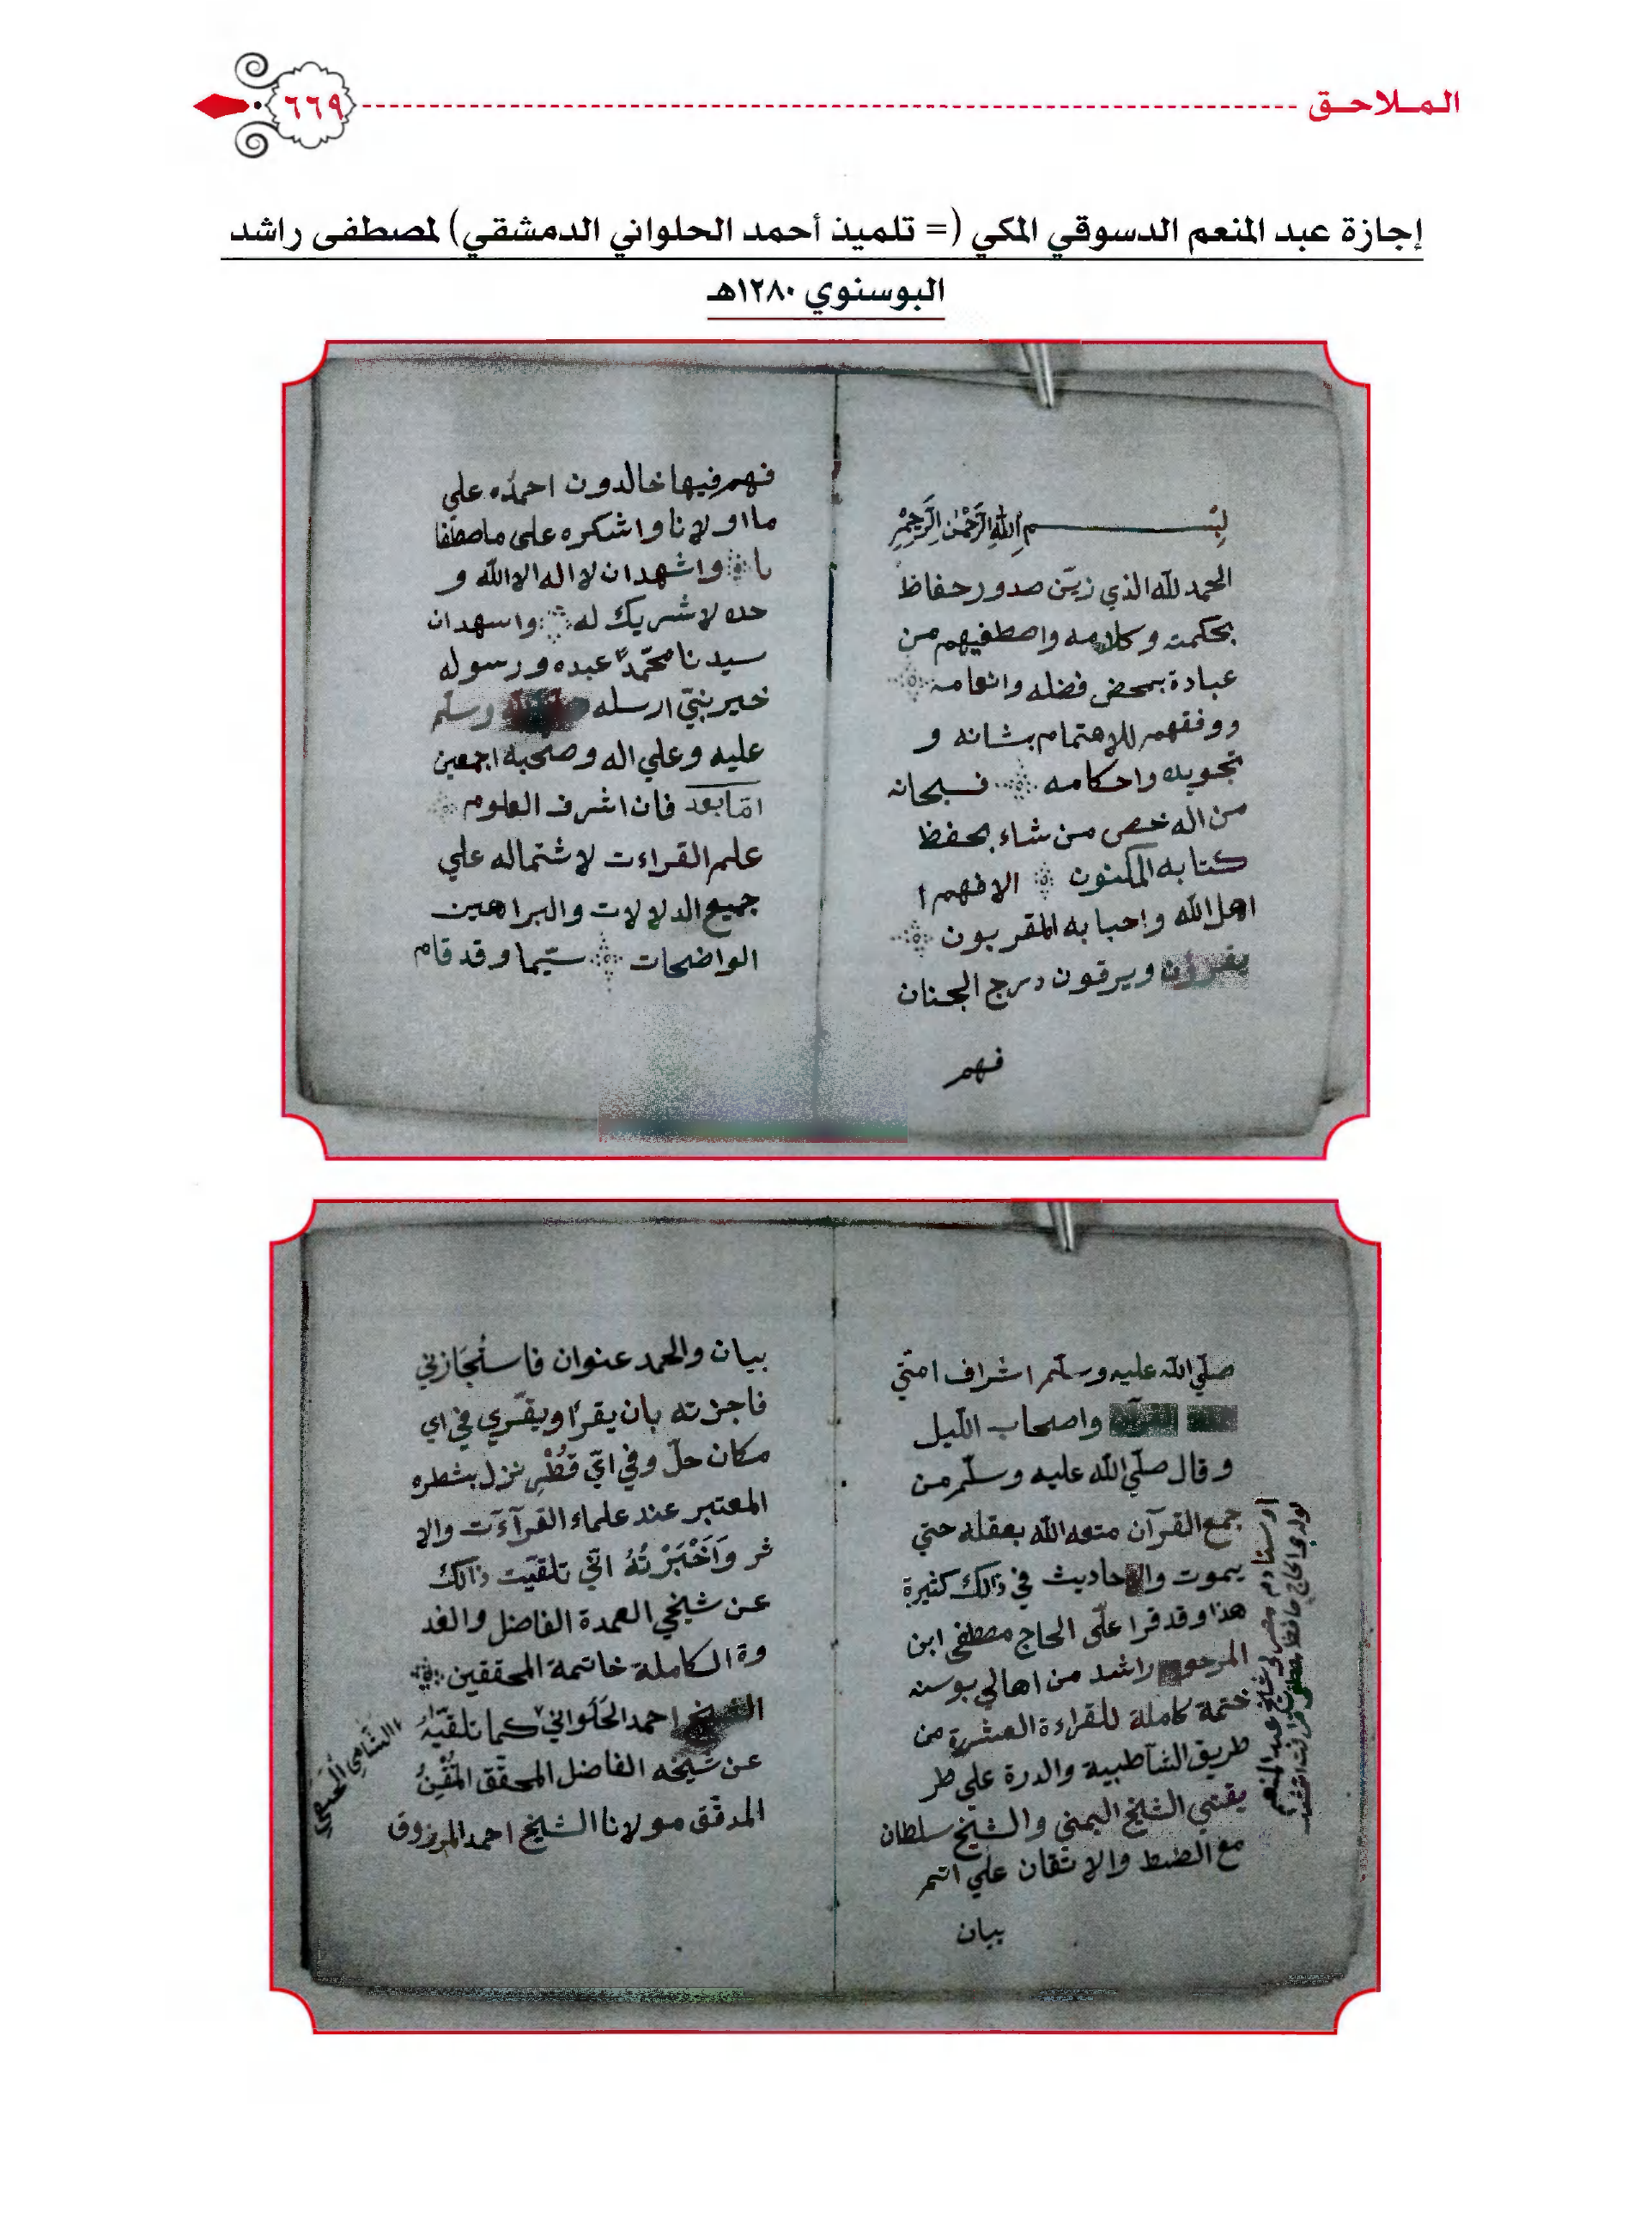 الملاحق
٦٦٩
إجازة عبد المنعم الدسوقي المكي (= تلميذ أحمد الحلواني الدمشقي) لمصطفى راشد
البوسنوي ١٢٨٠هـ
بسم الله الرحمن الرحيم
الحمد لله الذي زين صدور حفاظ
بحكمته وكلامه واصطفيهم من
عبادة بمحض فضله وانعامه
ووفقهم للاهتمام بشانه و
تجويده واحكامه فسبحانه
من اله خص من شاء بحفظ
كتابه المكنون الا فهم ا
اهل الله واحبابه المقربون
يقرؤن ويرقون درج الجنان
فهم
فهم فيها خالدون احمده علي
ما اولانا واشكره على ماصطفا
نا واشهد ان لا اله الا الله و
حده لا شريك له واسهد ان
سيدنا محمدا عبده ورسوله
خير نبي ارسله وسلم
عليه وعلي اله وصحبه اجمعين
اما بعد فان اشرف العلوم
علم القراءت لاشتماله علي
جميع الدلالات والبراهين
الواضحات سيما وقد قام
صلي الله عليه وسلم اشراف امتي
القرآن واصحاب الليل
وقال صلي الله عليه وسلم من
جمع القرآن متعه الله بعقله حتي
يموت والاحاديث في ذالك كثيرة
هذا وقد قرا علي الحاج مصطفى ابن
المرحوم راشد من اهالي بوسنه
ختمة كاملة للقراءة العشرة من
طريق الشاطبية والدرة علي طر
يقتي الشيخ اليمني والشيخ سلطان
مع الضبط والاتقان علي اتم
بيان
بيان والحمد عنوان فاستجازني
فاجزته بان يقرا ويقري في اي
مكان حل وفي اي قطر نزل بشطره
المعتبر عند علماء القرآءت والا
ثر وأخبرته اني تلقيت ذالك
عن شيخي العمدة الفاضل والقد
وة الكاملة خاتمة المحققين
الشيخ احمد الحلواني كما تلقيه
عن شيخه الفاضل المحقق المتقن
المدقق مولانا الشيخ احمد المرزوق